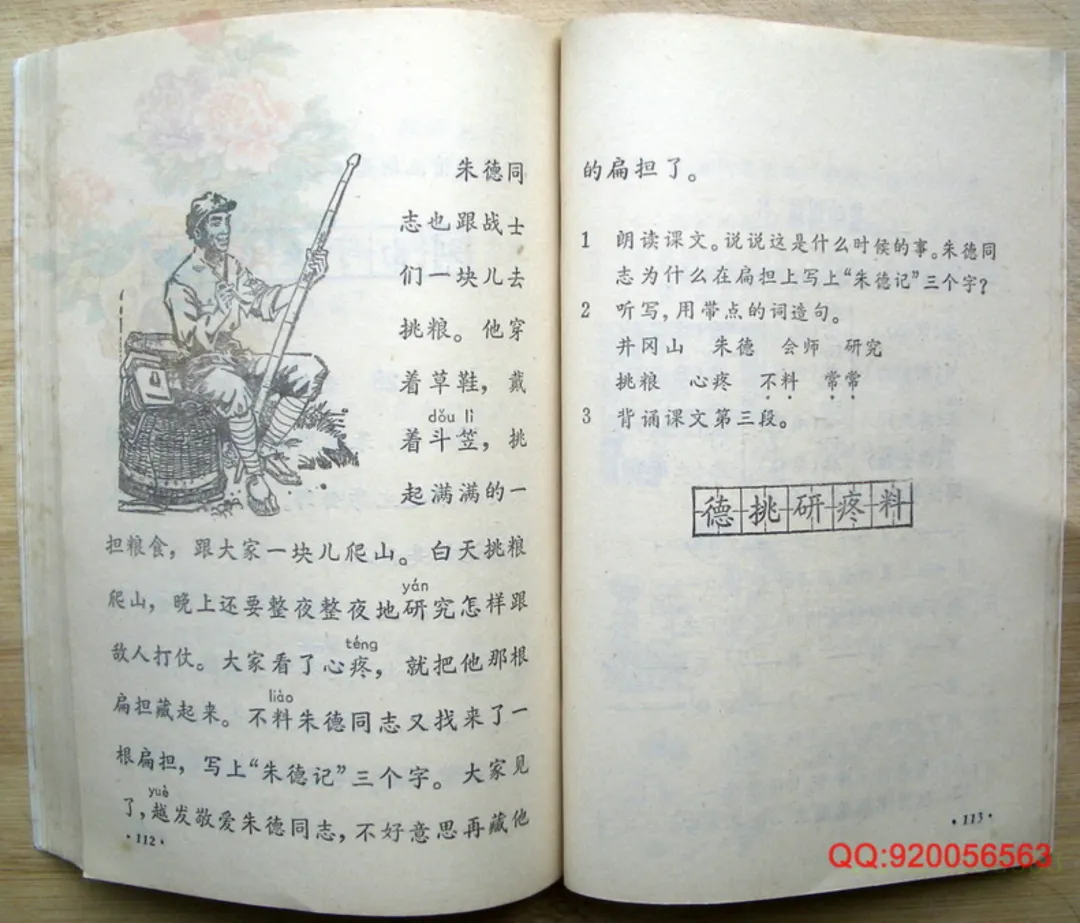 朱德同
志也跟战士
们一块儿去
挑粮。他穿
着草鞋，戴
dǒu lì
着斗笠，挑
起满满的一
担粮食，跟大家一块儿爬山。白天挑粮
yán
爬山，晚上还要整夜整夜地研究怎样跟
téng
敌人打仗。大家看了心疼，就把他那根
liào
扁担藏起来。不料朱德同志又找来了一
根扁担，写上“朱德记”三个字。大家见
yuè
了，越发敬爱朱德同志，不好意思再藏他
·112·
的扁担了。
1 朗读课文。说说这是什么时候的事。朱德同
志为什么在扁担上写上“朱德记”三个字？
2 听写，用带点的词造句。
井冈山 朱德 会师 研究
挑粮 心疼 不料 常常
3 背诵课文第三段。
德挑研疼料
·113·
QQ:920056563